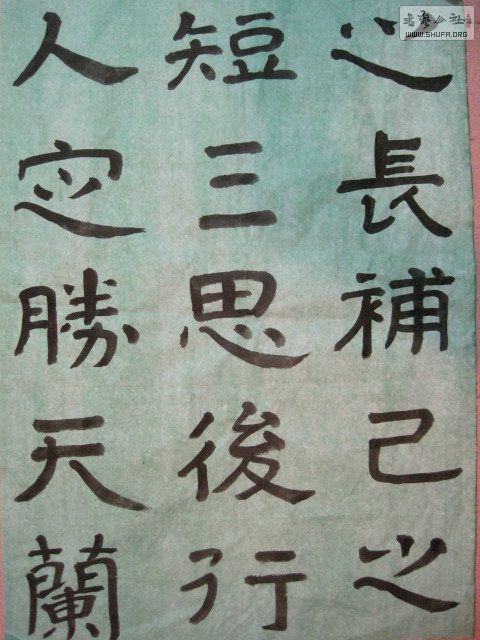 之長補己之
短三思後行
人定勝天蘭
書藝公社
WWW.SHUFA.ORG